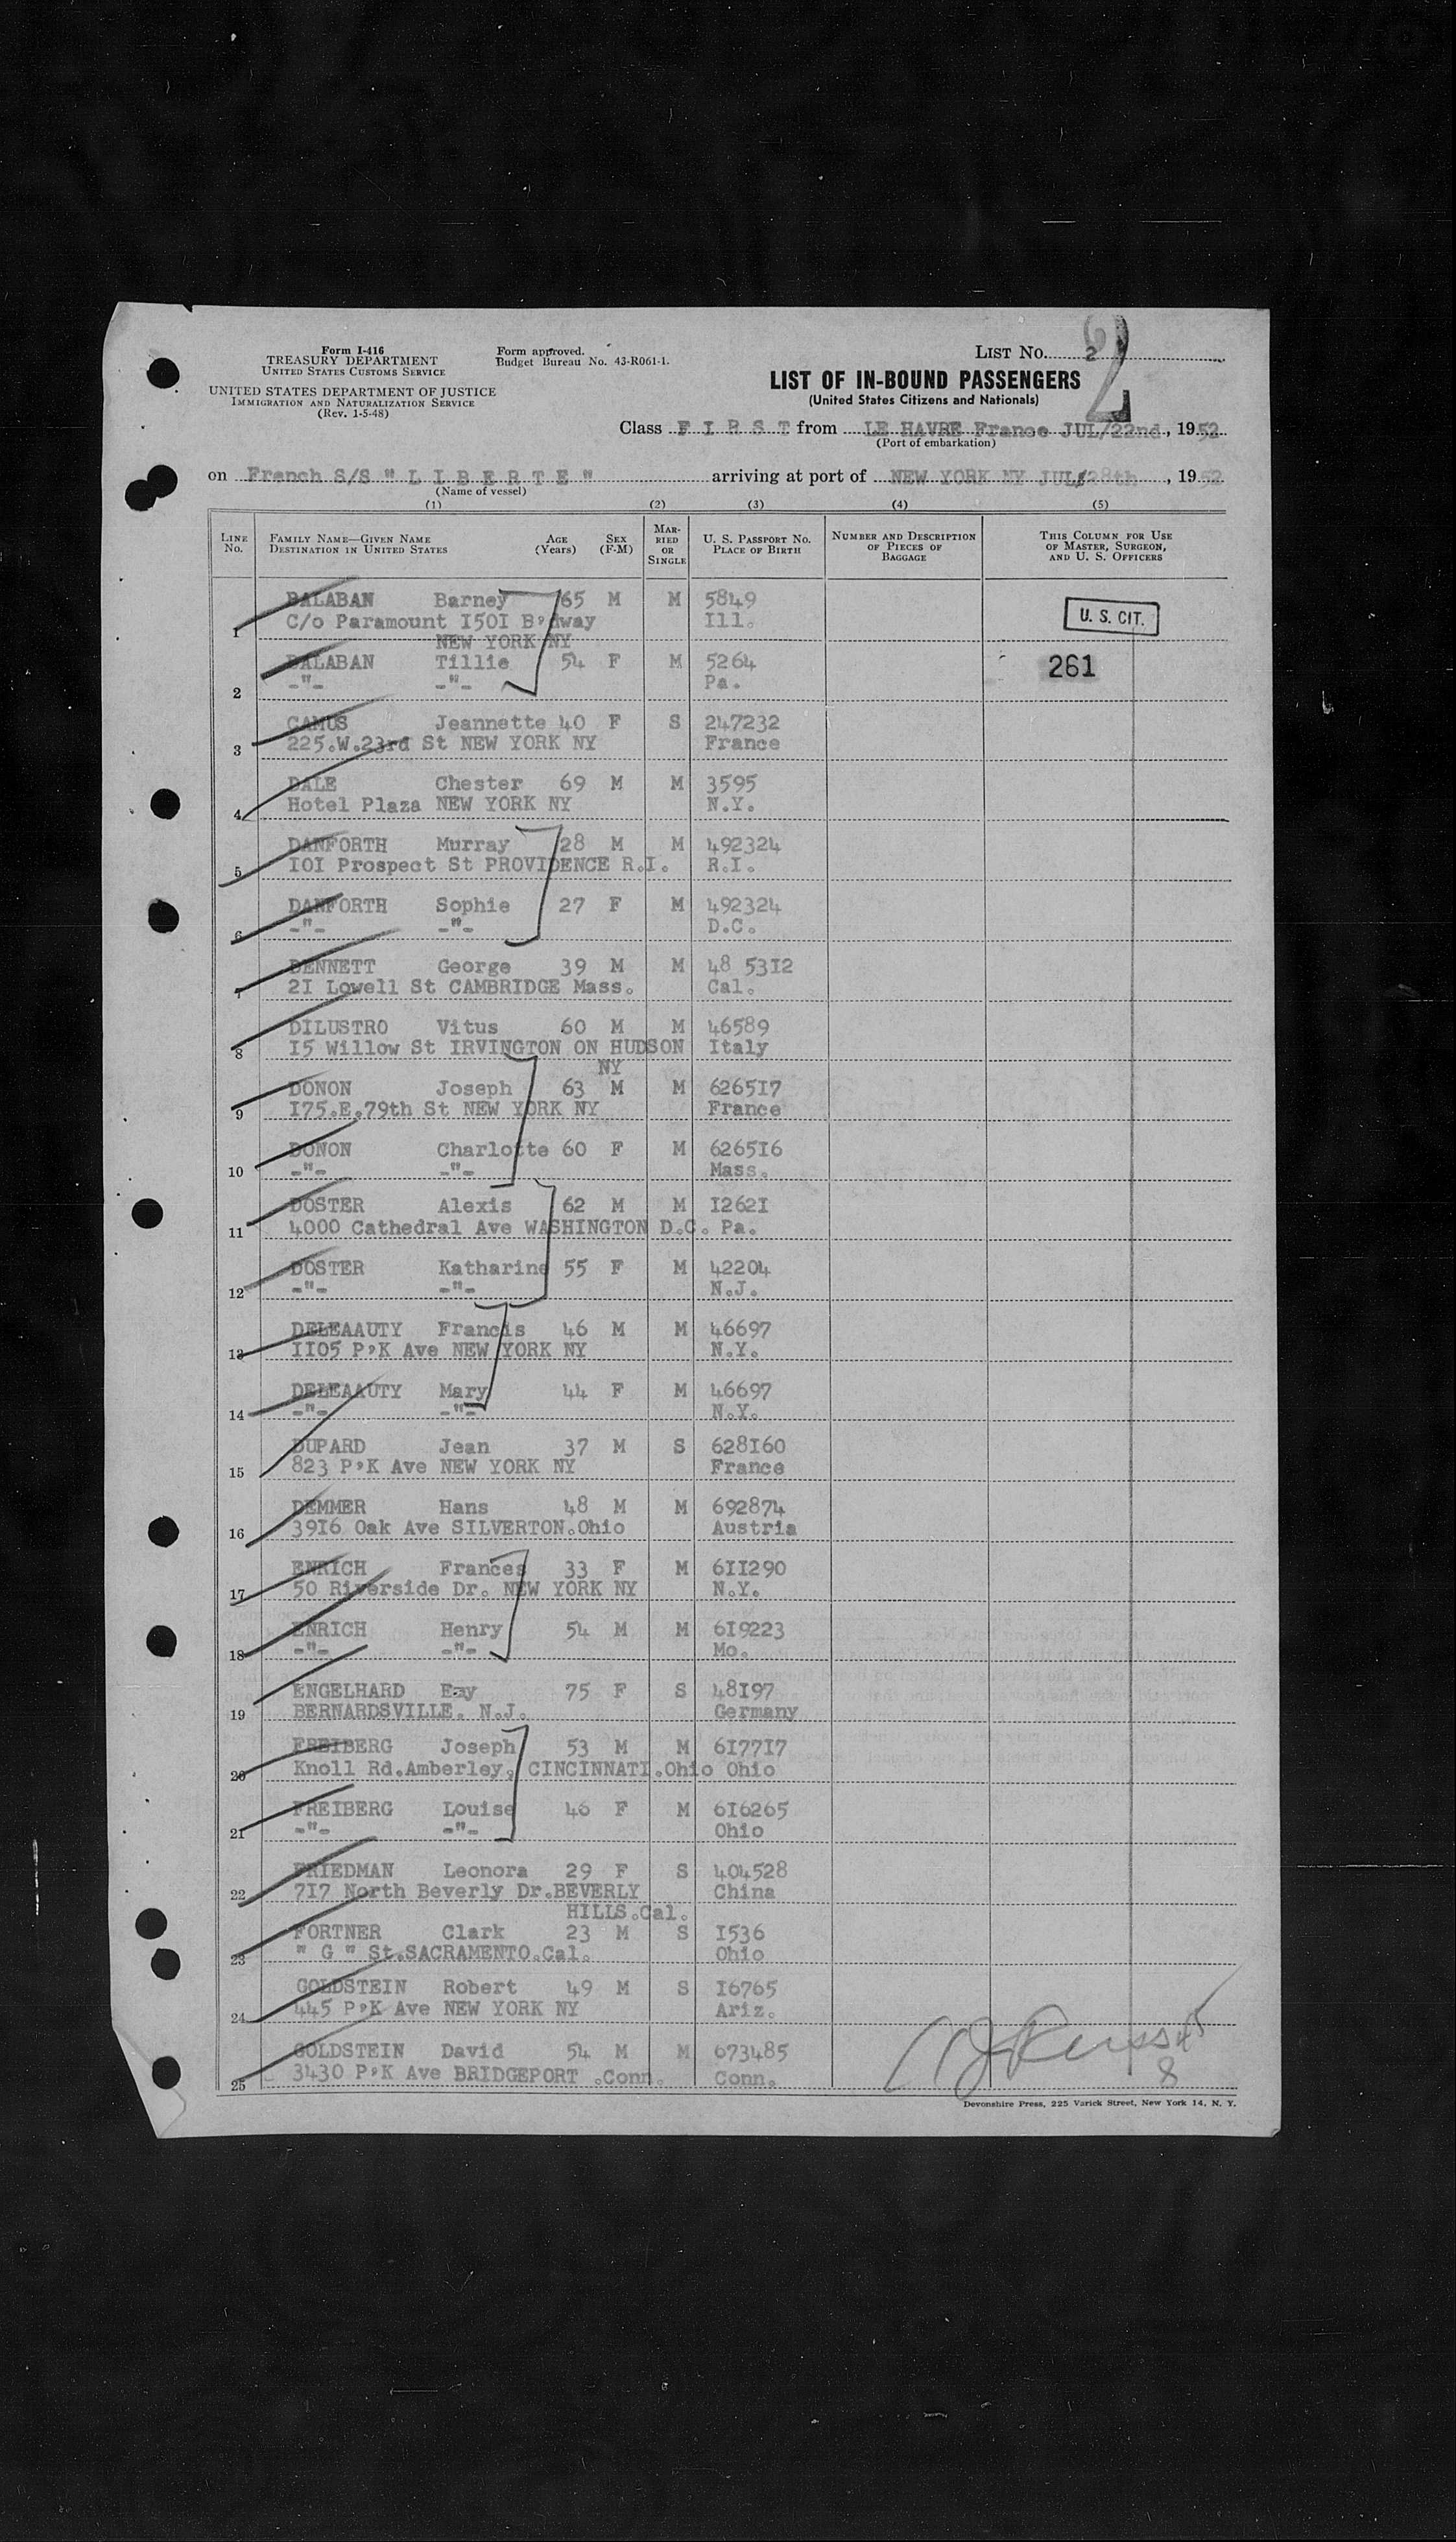 Form I-416
TREASURY DEPARTMENT
UNITED STATES CUSTOMS SERVICE
UNITED STATES DEPARTMENT OF JUSTICE
IMMIGRATION AND NATURALIZATION SERVICE
(Rev. 1-5-48)
Form approved.
Budget Bureau No. 43-R061-1.
LIST NO. 2
2
LIST OF IN-BOUND PASSENGERS
(United States Citizens and Nationals)
Class F I R S T from LE HAVRE France JUL/22nd, 1952
(Port of embarkation)
on French S/S " L I B E R T E " arriving at port of NEW YORK NY JUL/28th, 1952
(Name of vessel)
(1) (2) (3) (4) (5)
LINE No. FAMILY NAME—GIVEN NAME DESTINATION IN UNITED STATES AGE (Years) SEX (F-M) MARRIED OR SINGLE U. S. PASSPORT NO. PLACE OF BIRTH NUMBER AND DESCRIPTION OF PIECES OF BAGGAGE THIS COLUMN FOR USE OF MASTER, SURGEON, AND U. S. OFFICERS
BALABAN Barney 65 M M 5849
1 C/o Paramount I50I B'dway Ill. U. S. CIT.
NEW YORK NY
BALABAN Tillie 54 F M 5264 261
2 -"- -"- Pa.
CAMUS Jeannette 40 F S 247232
3 225.W.23rd St NEW YORK NY France
DALE Chester 69 M M 3595
4 Hotel Plaza NEW YORK NY N.Y.
DANFORTH Murray 28 M M 492324
5 IOI Prospect St PROVIDENCE R.I. R.I.
DANFORTH Sophie 27 F M 492324
6 -"- -"- D.C.
DENNETT George 39 M M 48 53I2
7 2I Lowell St CAMBRIDGE Mass. Cal.
DILUSTRO Vitus 60 M M 46589
8 I5 Willow St IRVINGTON ON HUDSON Italy
NY
DONON Joseph 63 M M 6265I7
9 I75.E.79th St NEW YORK NY France
DONON Charlotte 60 F M 6265I6
10 -"- -"- Mass.
DOSTER Alexis 62 M M I262I
11 4000 Cathedral Ave WASHINGTON D.C. Pa.
DOSTER Katharine 55 F M 42204
12 -"- -"- N.J.
DELEAAUTY Francis 46 M M 46697
13 II05 P'K Ave NEW YORK NY N.Y.
DELEAAUTY Mary 44 F M 46697
14 -"- -"- N.Y.
DUPARD Jean 37 M S 628I60
15 823 P'K Ave NEW YORK NY France
DEMMER Hans 48 M M 692874
16 39I6 Oak Ave SILVERTON.Ohio Austria
ENRICH Frances 33 F M 6II290
17 50 Riverside Dr. NEW YORK NY N.Y.
ENRICH Henry 54 M M 6I9223
18 -"- -"- Mo.
ENGELHARD Eay 75 F S 48I97
19 BERNARDSVILLE. N.J. Germany
FREIBERG Joseph 53 M M 6I77I7
20 Knoll Rd.Amberley, CINCINNATI.Ohio Ohio
FREIBERG Louise 46 F M 6I6265
21 -"- -"- Ohio
FRIEDMAN Leonora 29 F S 404528
22 7I7 North Beverly Dr.BEVERLY China
HILLS.Cal.
FORTNER Clark 23 M S I536
23 " G " St.SACRAMENTO.Cal. Ohio
GOLDSTEIN Robert 49 M S I6765
24 445 P'K Ave NEW YORK NY Ariz.
GOLDSTEIN David 54 M M 673485
25 3430 P'K Ave BRIDGEPORT .Conn. Conn.
8
Devonshire Press, 225 Varick Street, New York 14, N. Y.